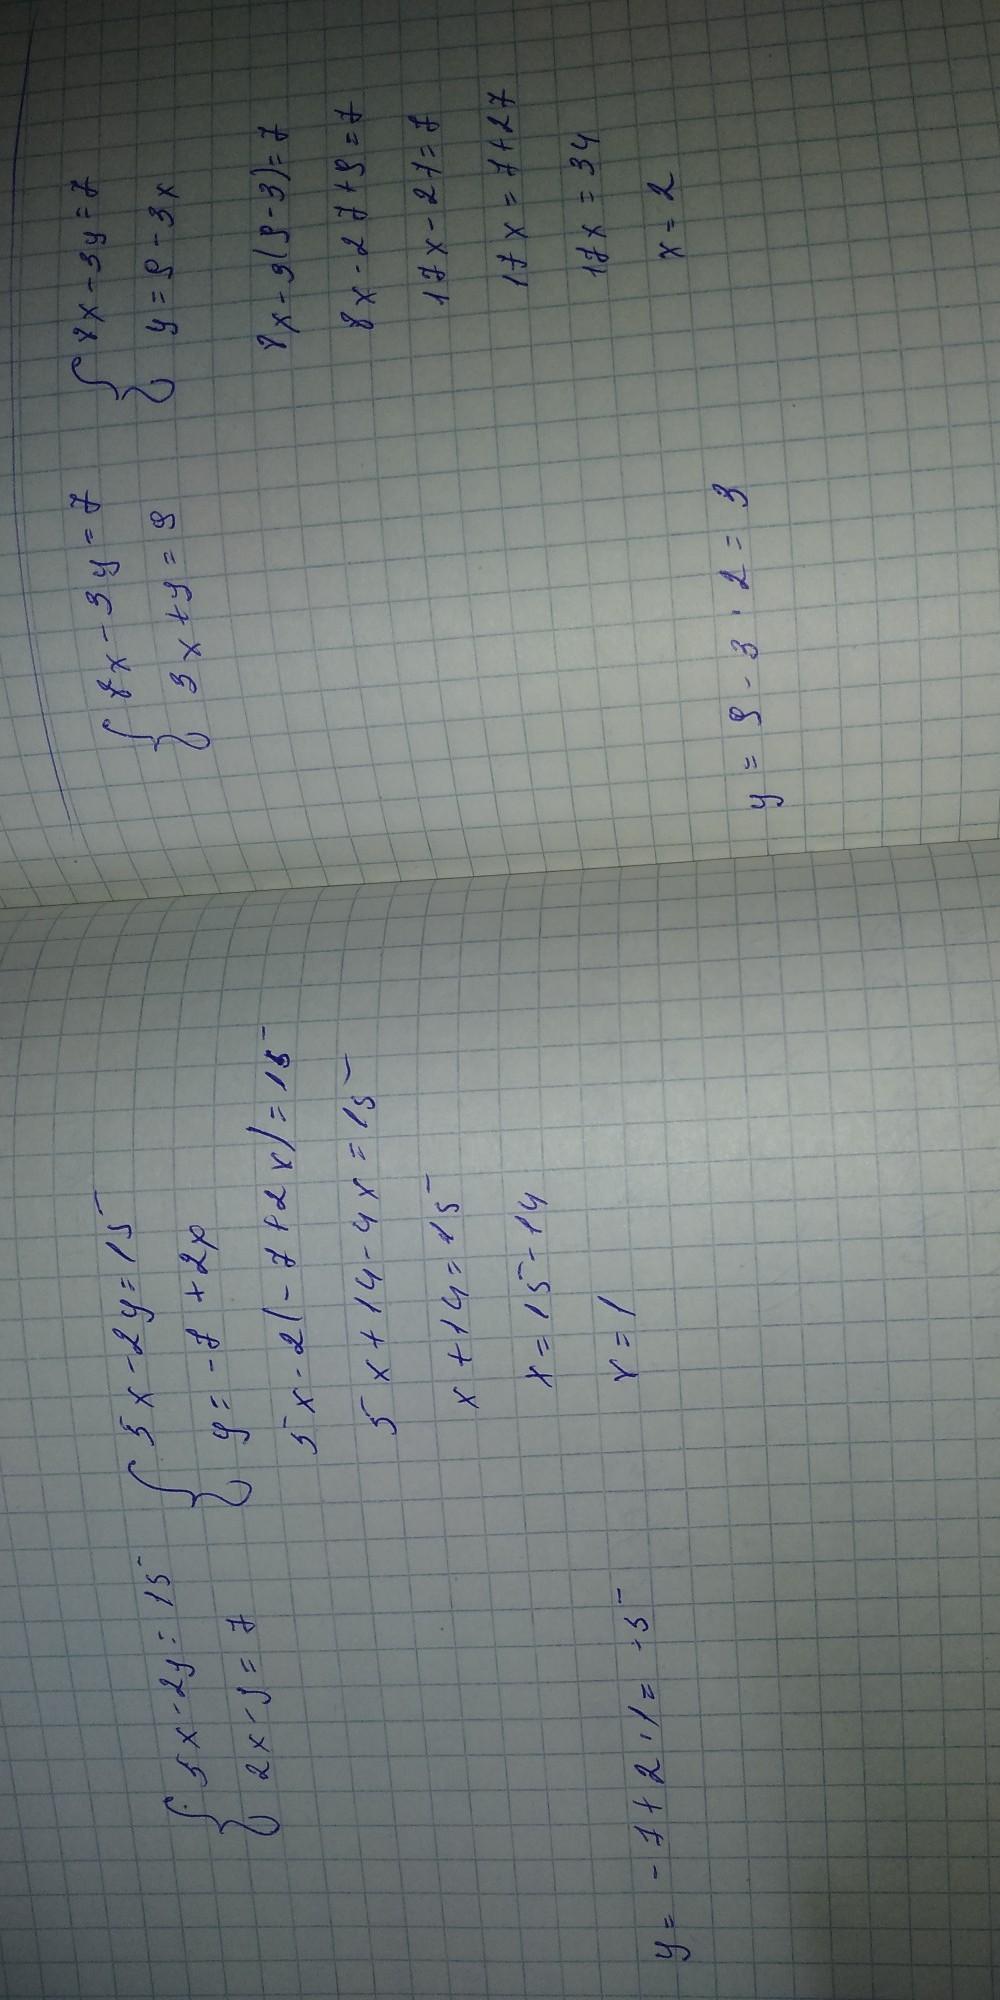 5x-2y=15
2x-y=7
5x-2y=15
y=-7+2x
5x-2(-7+2x)=15
5x+14-4x=15
x+14=15
x=15-14
x=1
y=-7+2·1=-5
8x-3y=7
3x+y=9
8x-3y=7
y=9-3x
8x-3(9-3)=7
8x-27+9=7
17x-27=7
17x=7+27
17x=34
x=2
y=9-3·2=3